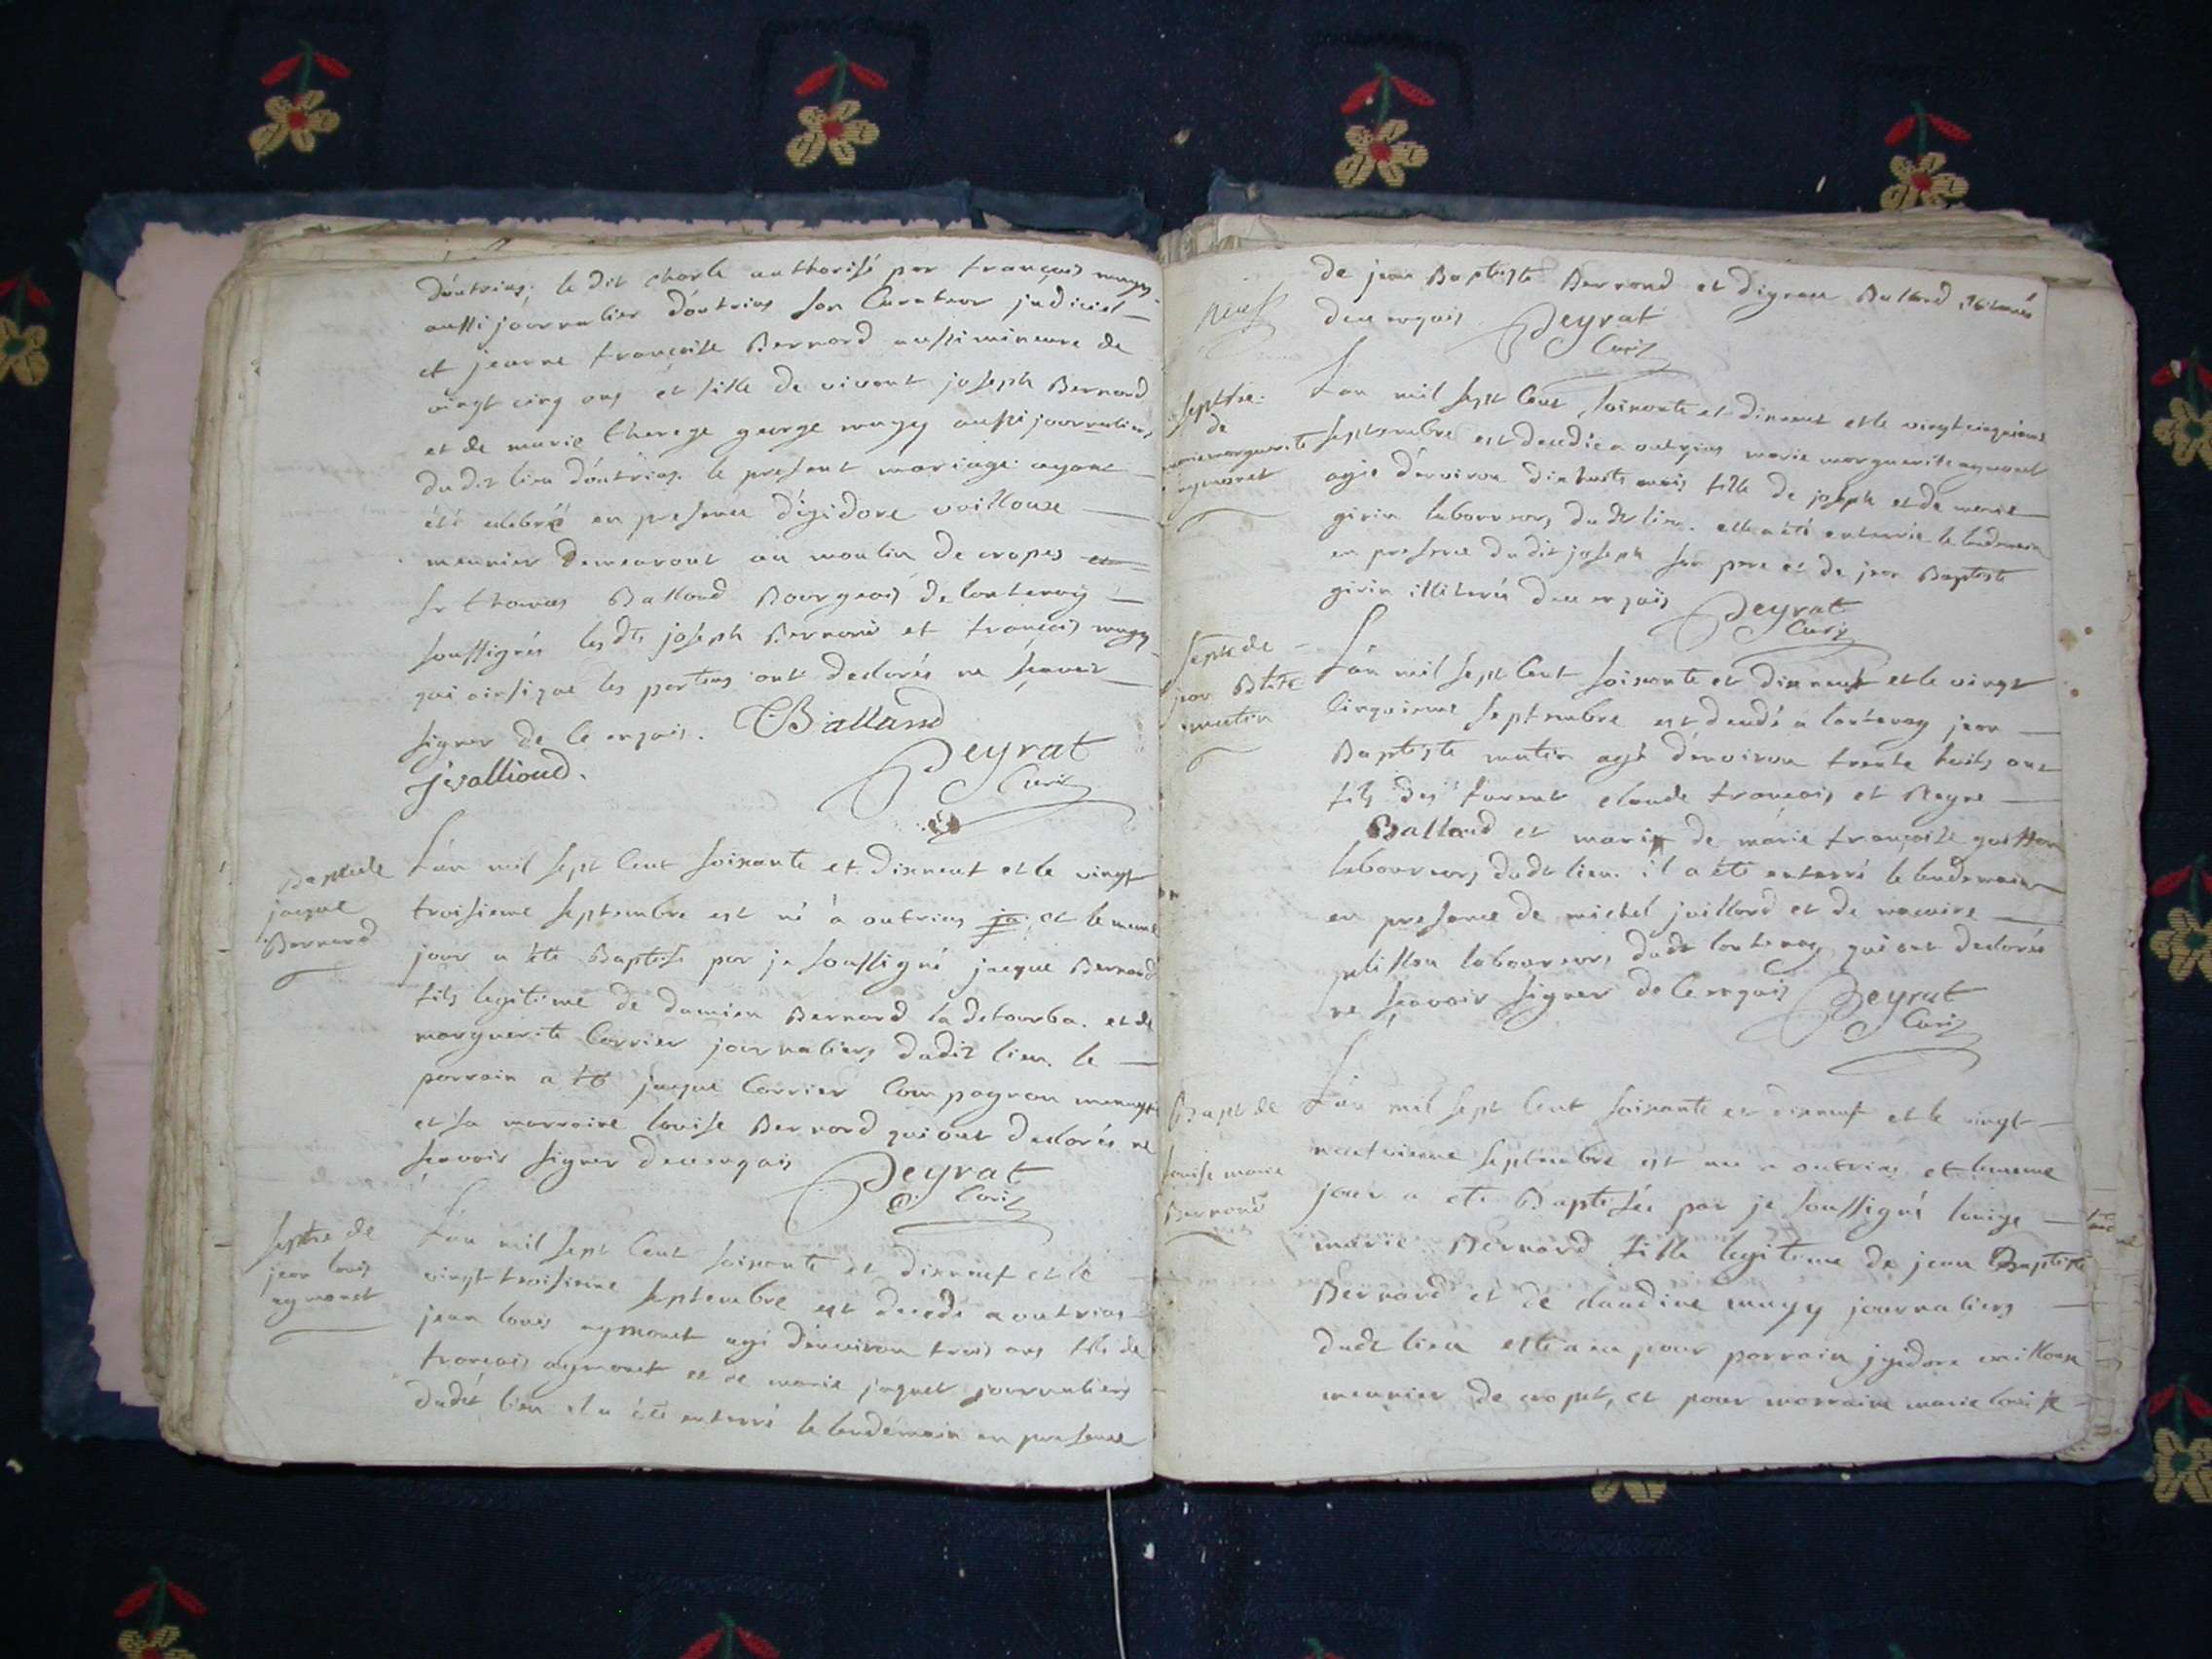 d'outrias; le dit charle authorisé par françois mugy
aussi journalier d'outrias son Curateur judiciel
et jeanne françoise Bernard aussi mineure de
vingt cinq ans et fille de vivant joseph Bernard
et de marie therese george mugy aussi journaliers
du dit lieu d'outrias. le present mariage ayant
été celebré en presence d'ysidore vaillouse
meunier demeurant au moulin de cropet et
sr thomas Balland Bourgeois de lantenay
soussignés les dts joseph Bernard et françois mugy
qui ainsi que les parties ont declarés ne sçavoir
signer de ce enquis. TBalland
Peyrat
jvallioud.
Curé
Baptde
jacque
Bernard
L'an mil sept Cent soixante et dixneuf et le vingt
troisieme septembre est né a outrias ja et le meme
jour a été Baptisé par je soussigné jacque Bernard
fils legitime de damien Bernard la detourba. et de
marguerite Carrier journaliers dudit lieu. le
parrain a été jacque Carrier Compagnon
et sa marraine louise Bernard qui ont declarés ne
sçavoir signer de ce enquis Peyrat
Curé
septre de
jean louis
aymonet
L'an mil sept Cent soixante et dixneuf et le
vingt troisieme septembre est decedé a outrias
jean louis aymonet agé d'environ trois ans fils de
françois aymonet et de marie jaquet journaliers
dudit lieu il a été enterré le lendemain en presence
de jean Baptiste Bernard et Balland illiterés
de ce enquis Peyrat
Curé
neuf
septre
de
marie marguerite
aymonet
L'an mil sept Cent soixante et dixneuf et le vingt cinquieme
septembre est decedée a outrias marie marguerite aymonet
agée d'environ dixhuits mois fille de joseph et de marie
girin laboureurs du dt lieu. elle a été enterrée le lendemain
en presence du dit joseph son pere et de jean Baptiste
girin illiterés de ce enquis Peyrat
Curé
septre de
jean Btste
mutin
L'an mil sept Cent soixante et dixneuf et le vingt
Cinquieme septembre est decedé a lantenay jean
Baptiste mutin agé d'environ trente huits ans
fils des furent claude françois et Reyne
Balland et mari de marie françoise
laboureurs dudt lieu. il a été enterré le lendemain
en presence de michel juillard et de
laboureurs dudt lantenay qui ont declarés
ne sçavoir signer de ce enquis Peyrat
Curé
Bapt de
louise marie
Bernard
L'an mil sept Cent soixante et dixneuf et le vingt
neuvieme septembre est née a outrias et le meme
jour a eté Baptisée par je soussigné louise
marie Bernard fille legitime de jean Baptiste
Bernard et de claudine mugy journaliers
dudt lieu elle a eu pour parrain ysidore vaillouse
meunier de cropet, et pour marraine marie louise